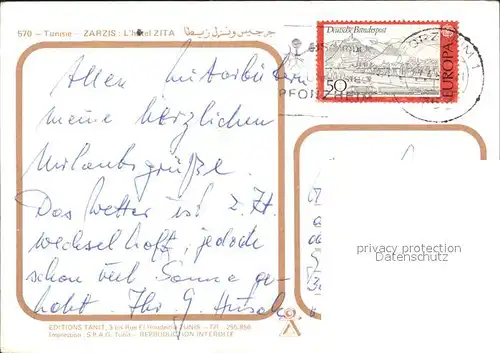 570 - Tunisie - ZARZIS : L'Hôtel ZITA جرجيس ونزل زيطا
Deutsche Bundespost
50
EUROPA
PFORZHEIM
Allen Mitarbeitern
meine herzlichen
Urlaubsgrüße.
Das Wetter ist z. Zt.
wechselhaft, jedoch
schon viel Sonne ge-
habt. Ihr G.
privacy protection
Datenschutz
EDITIONS TANIT, 3 bis Rue El Houdeibia TUNIS - Tél. : 255.856
Impression : S.P.A.G. Tunis - REPRODUCTION INTERDITE